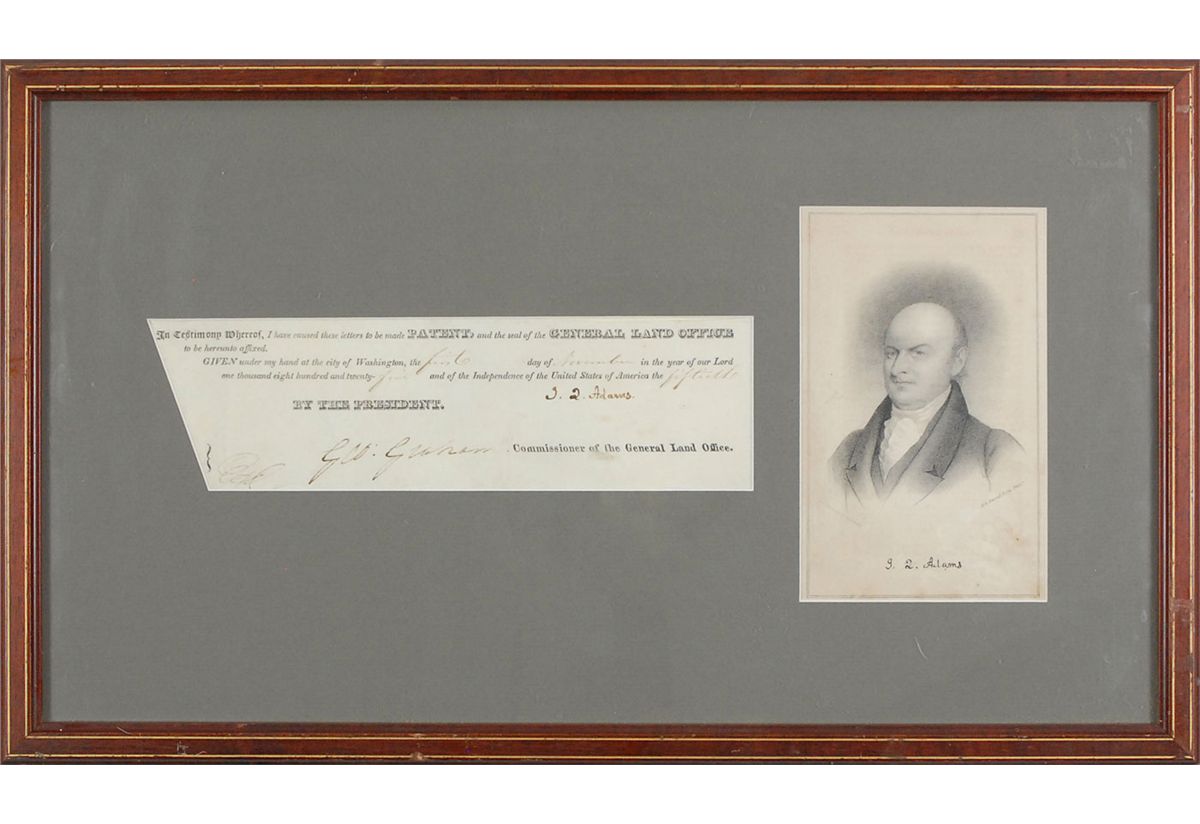 In Testimony Whereof, I have caused these letters to be made PATENT, and the seal of the GENERAL LAND OFFICE
to be hereunto affixed.
GIVEN under my hand at the city of Washington, the first day of November in the year of our Lord
one thousand eight hundred and twenty-five and of the Independence of the United States of America the fiftieth
J. Q. Adams.
BY THE PRESIDENT.
Geo. Graham Commissioner of the General Land Office.
J. Q. Adams